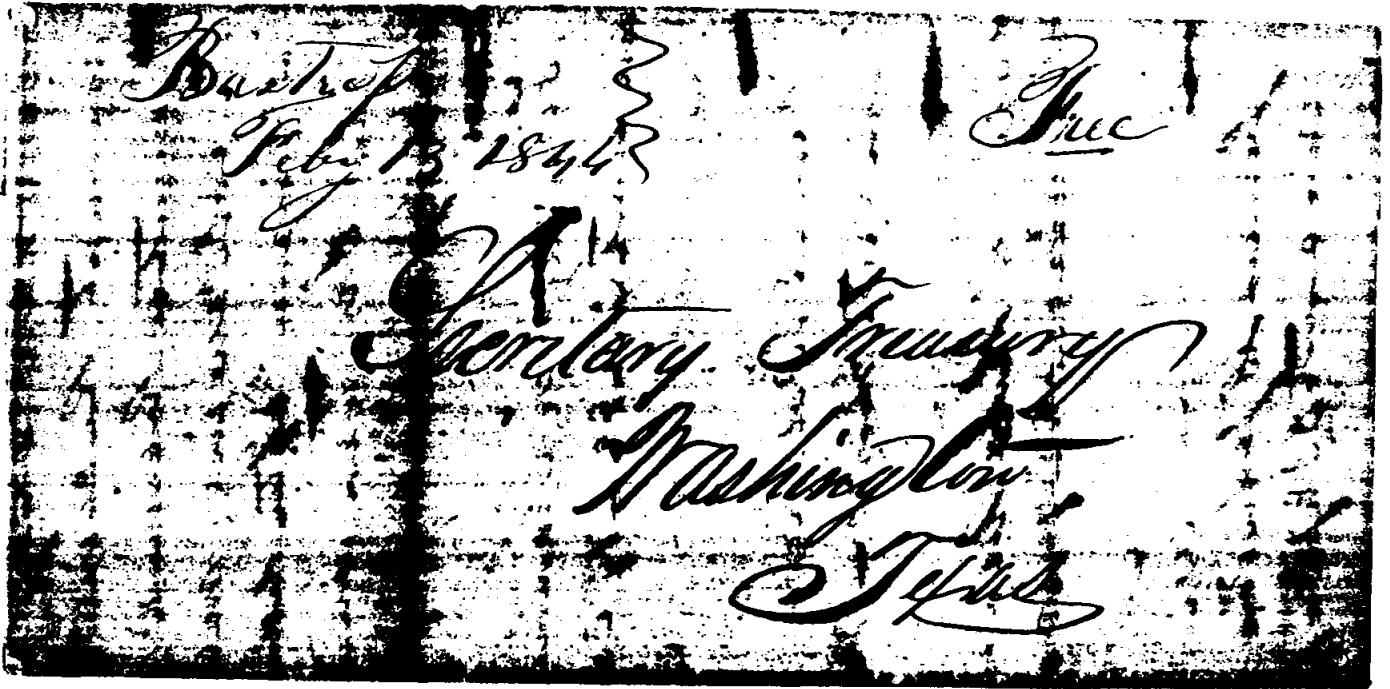 Bastrop
Free
Feby 13 1844
Secretary Treasury
Washington
Texas